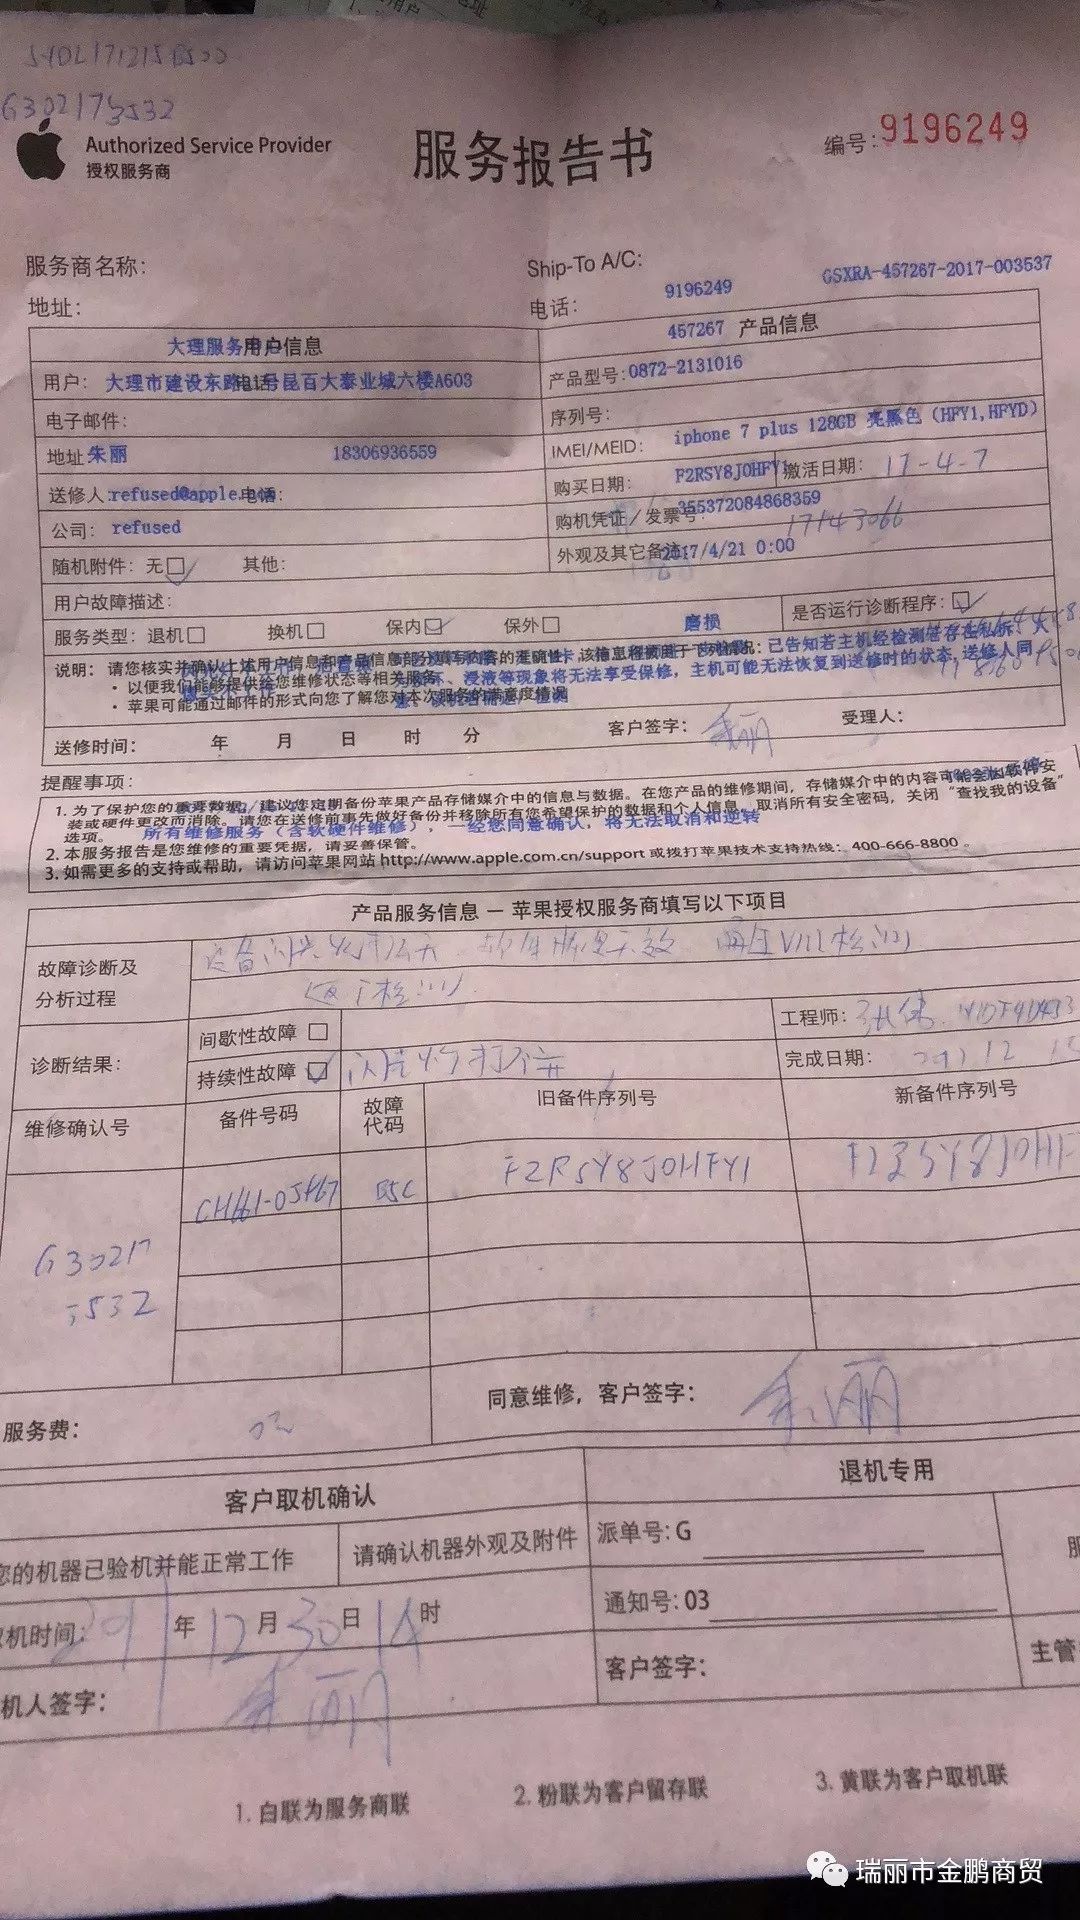 G302173532
Authorized Service Provider
授权服务商
服务报告书
编号:9196249
服务商名称:
Ship-To A/C:
9196249
GSXRA-457267-2017-003537
地址:
电话:
457267
产品信息
大理服务
用户信息
用户:
大理市建设东路
号昆百大泰业城六楼A603
产品型号:
0872-2131016
电子邮件:
序列号:
iphone 7 plus 128GB 亮黑色 (HFY1,HFYD)
地址
朱丽
18306936559
IMEI/MEID:
F2RSY8J0HFY1
送修人:
refused@apple.com
电话:
购买日期:
激活日期:
17-4-7
355372084868359
公司:
refused
购机凭证/发票号:
17143066
随机附件: 无□
其他:
外观及其它备注:
2017/4/21 0:00
用户故障描述:
服务类型: 退机□
换机□
保内□
保外□
磨损
是否运行诊断程序:□
说明: 请您核实并确认上述用户信息和产品信息部分填写内容的准确性,该信息将被用于下列情况:
已告知若主机经检测若存在私拆、人
• 以便我们能够提供给您维修状态等相关服务
、浸液等现象将无法享受保修, 主机可能无法恢复到送修时的状态,送修人同
• 苹果可能通过邮件的形式向您了解您对本次服务的满意度情况
送修时间:
年 月 日 时 分
客户签字:
朱丽
受理人:
提醒事项:
1. 为了保护您的重要数据, 建议您定期备份苹果产品存储媒介中的信息与数据。在您产品的维修期间, 存储媒介中的内容可能会因软件安
装或硬件更改而消除。请您在送修前事先做好备份并移除所有您希望保护的数据和个人信息, 取消所有安全密码, 关闭“查找我的设备”
选项。
所有维修服务(含软硬件维修), 一经您同意确认, 将无法取消和逆转
2. 本服务报告是您维修的重要凭据, 请妥善保管。
3. 如需更多的支持或帮助, 请访问苹果网站 http://www.apple.com.cn/support 或拨打苹果技术支持热线: 400-666-8800 。
产品服务信息 — 苹果授权服务商填写以下项目
故障诊断及
分析过程
设备闪光灯打不开 软件修复无效
诊断结果:
间歇性故障 □
工程师:
持续性故障 □
闪光灯打不开
完成日期:
维修确认号
备件号码
故障
代码
旧备件序列号
新备件序列号
F2RSY8J0HFY1
G30217
3532
服务费:
同意维修, 客户签字:
朱丽
客户取机确认
退机专用
您的机器已验机并能正常工作
请确认机器外观及附件
派单号: G
通知号: 03
取机时间:
年 12 月 30 日 14 时
客户签字:
主管
机人签字:
朱丽
1. 白联为服务商联
2. 粉联为客户留存联
3. 黄联为客户取机联
瑞丽市金鹏商贸